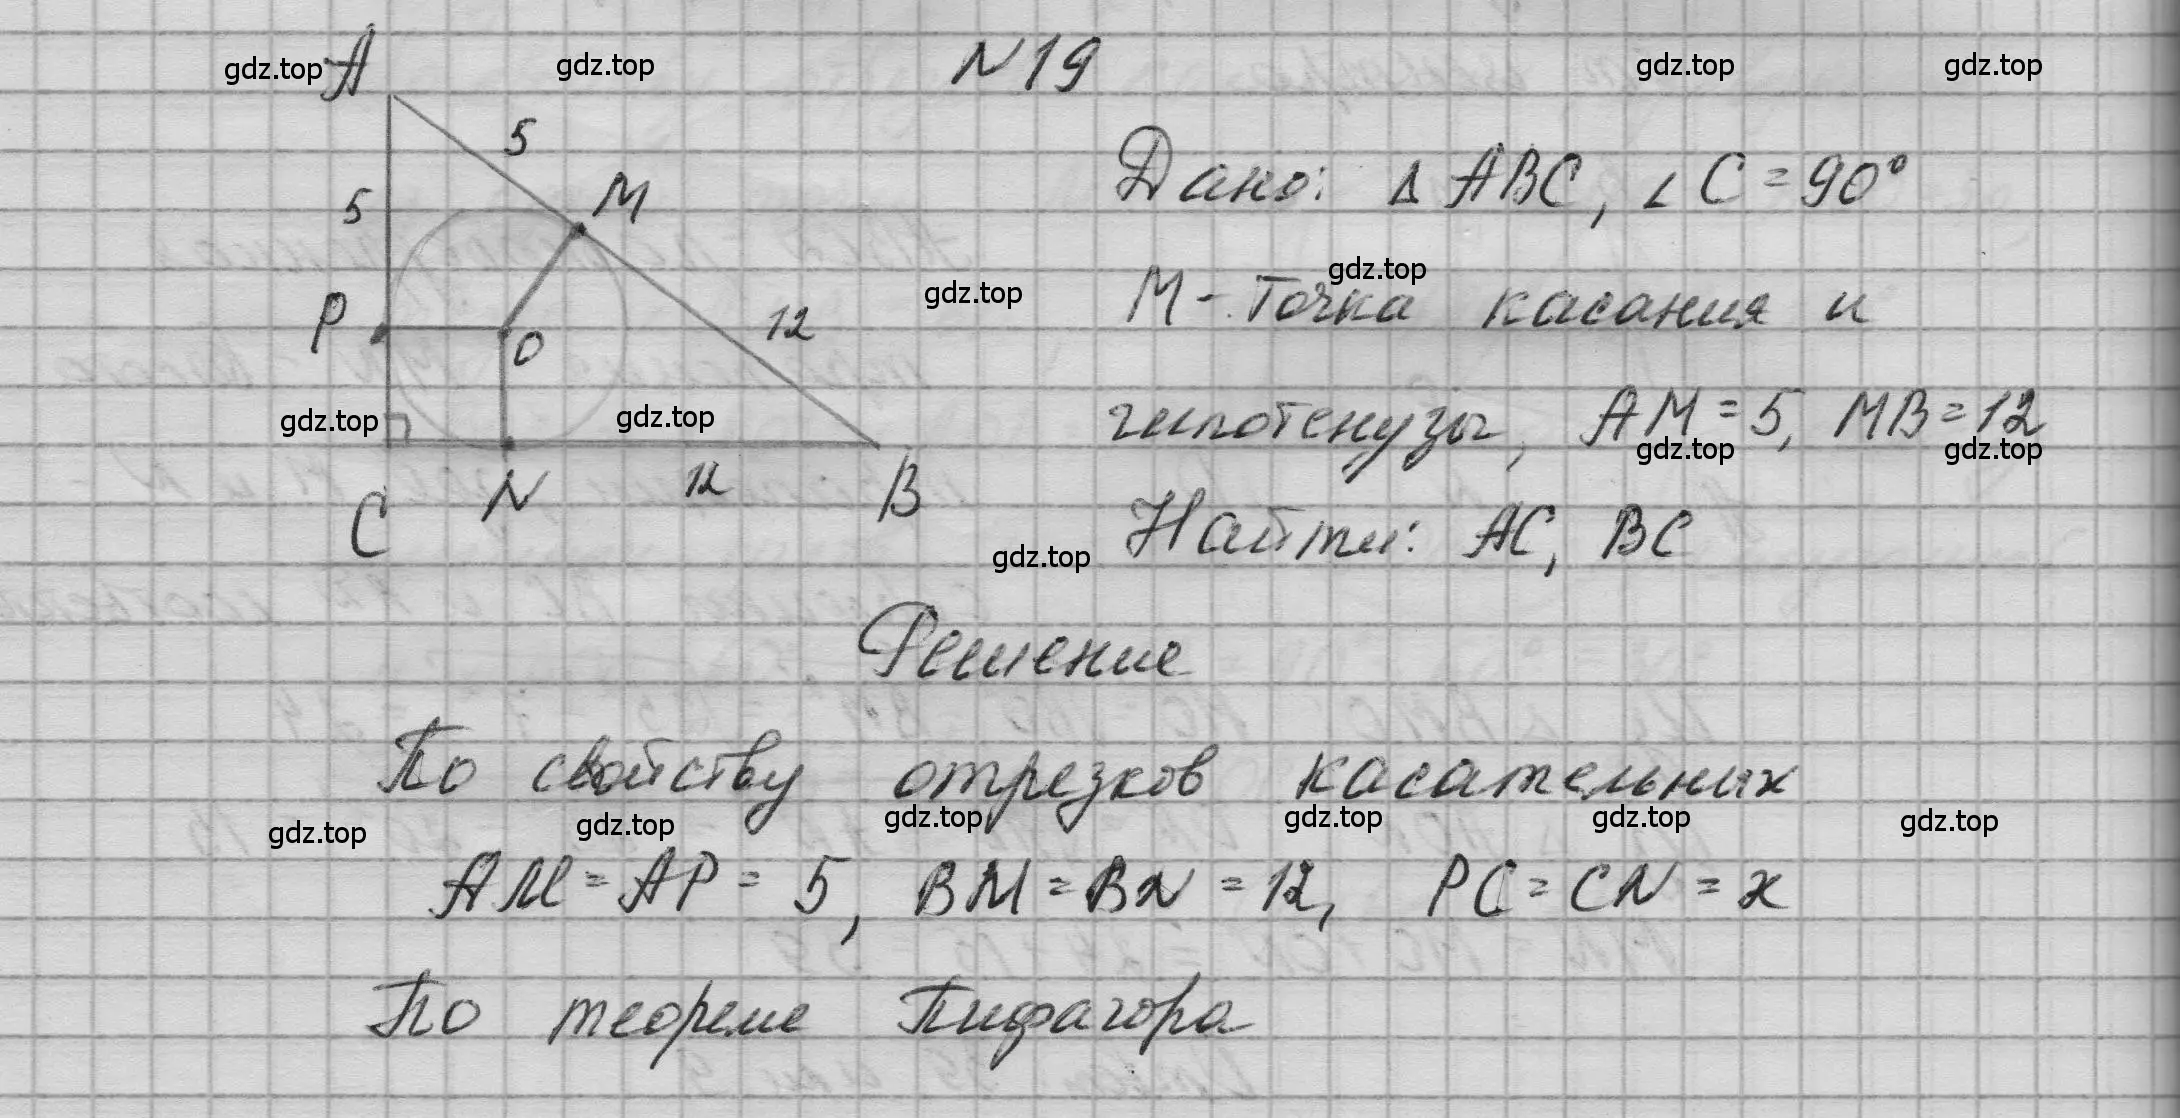 №19
A
5
M
5
P
O
12
C
N
12
B
Дано: Δ ABC, ∠C = 90°
M - точка касания и
гипотенузы, AM = 5, MB = 12
Найти: AC, BC
Решение
По свойству отрезков касательных
AM = AP = 5, BM = BN = 12, PC = CN = x
По теореме Пифагора
gdz.top gdz.top gdz.top gdz.top
gdz.top gdz.top
gdz.top gdz.top gdz.top gdz.top
gdz.top
gdz.top gdz.top gdz.top gdz.top gdz.top gdz.top